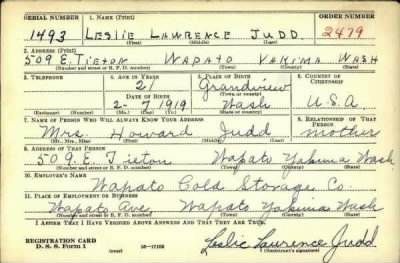 SERIAL NUMBER 1. NAME (Print) ORDER NUMBER
1493 LESLIE LAWRENCE JUDD. 2479
(First) (Middle) (Last)
2. ADDRESS (Print)
509 E. TIETON WAPATO YAKIMA WASH
(Number and street or R. F. D. number) (Town) (County) (State)
3. TELEPHONE 4. AGE IN YEARS 5. PLACE OF BIRTH 6. COUNTRY OF CITIZENSHIP
21 Grandview
DATE OF BIRTH (Town or county)
2-7 1919 Wash U.S.A.
(Exchange) (Number) (Mo.) (Day) (Yr.) (State or country)
7. NAME OF PERSON WHO WILL ALWAYS KNOW YOUR ADDRESS 8. RELATIONSHIP OF THAT PERSON
Mrs. Howard Judd mother
(Mr., Mrs., Miss) (First) (Middle) (Last)
9. ADDRESS OF THAT PERSON
509. E. Tieton Wapato Yakima Wash
(Number and street or R. F. D. number) (Town) (County) (State)
10. EMPLOYER'S NAME
Wapato Cold Storage Co.
11. PLACE OF EMPLOYMENT OR BUSINESS
Wapato Ave Wapato Yakima Wash
(Number and street or R. F. D. number) (Town) (County) (State)
I AFFIRM THAT I HAVE VERIFIED ABOVE ANSWERS AND THAT THEY ARE TRUE.
REGISTRATION CARD
D. S. S. Form 1 (over) Leslie Lawrence Judd.
(Registrant's signature)